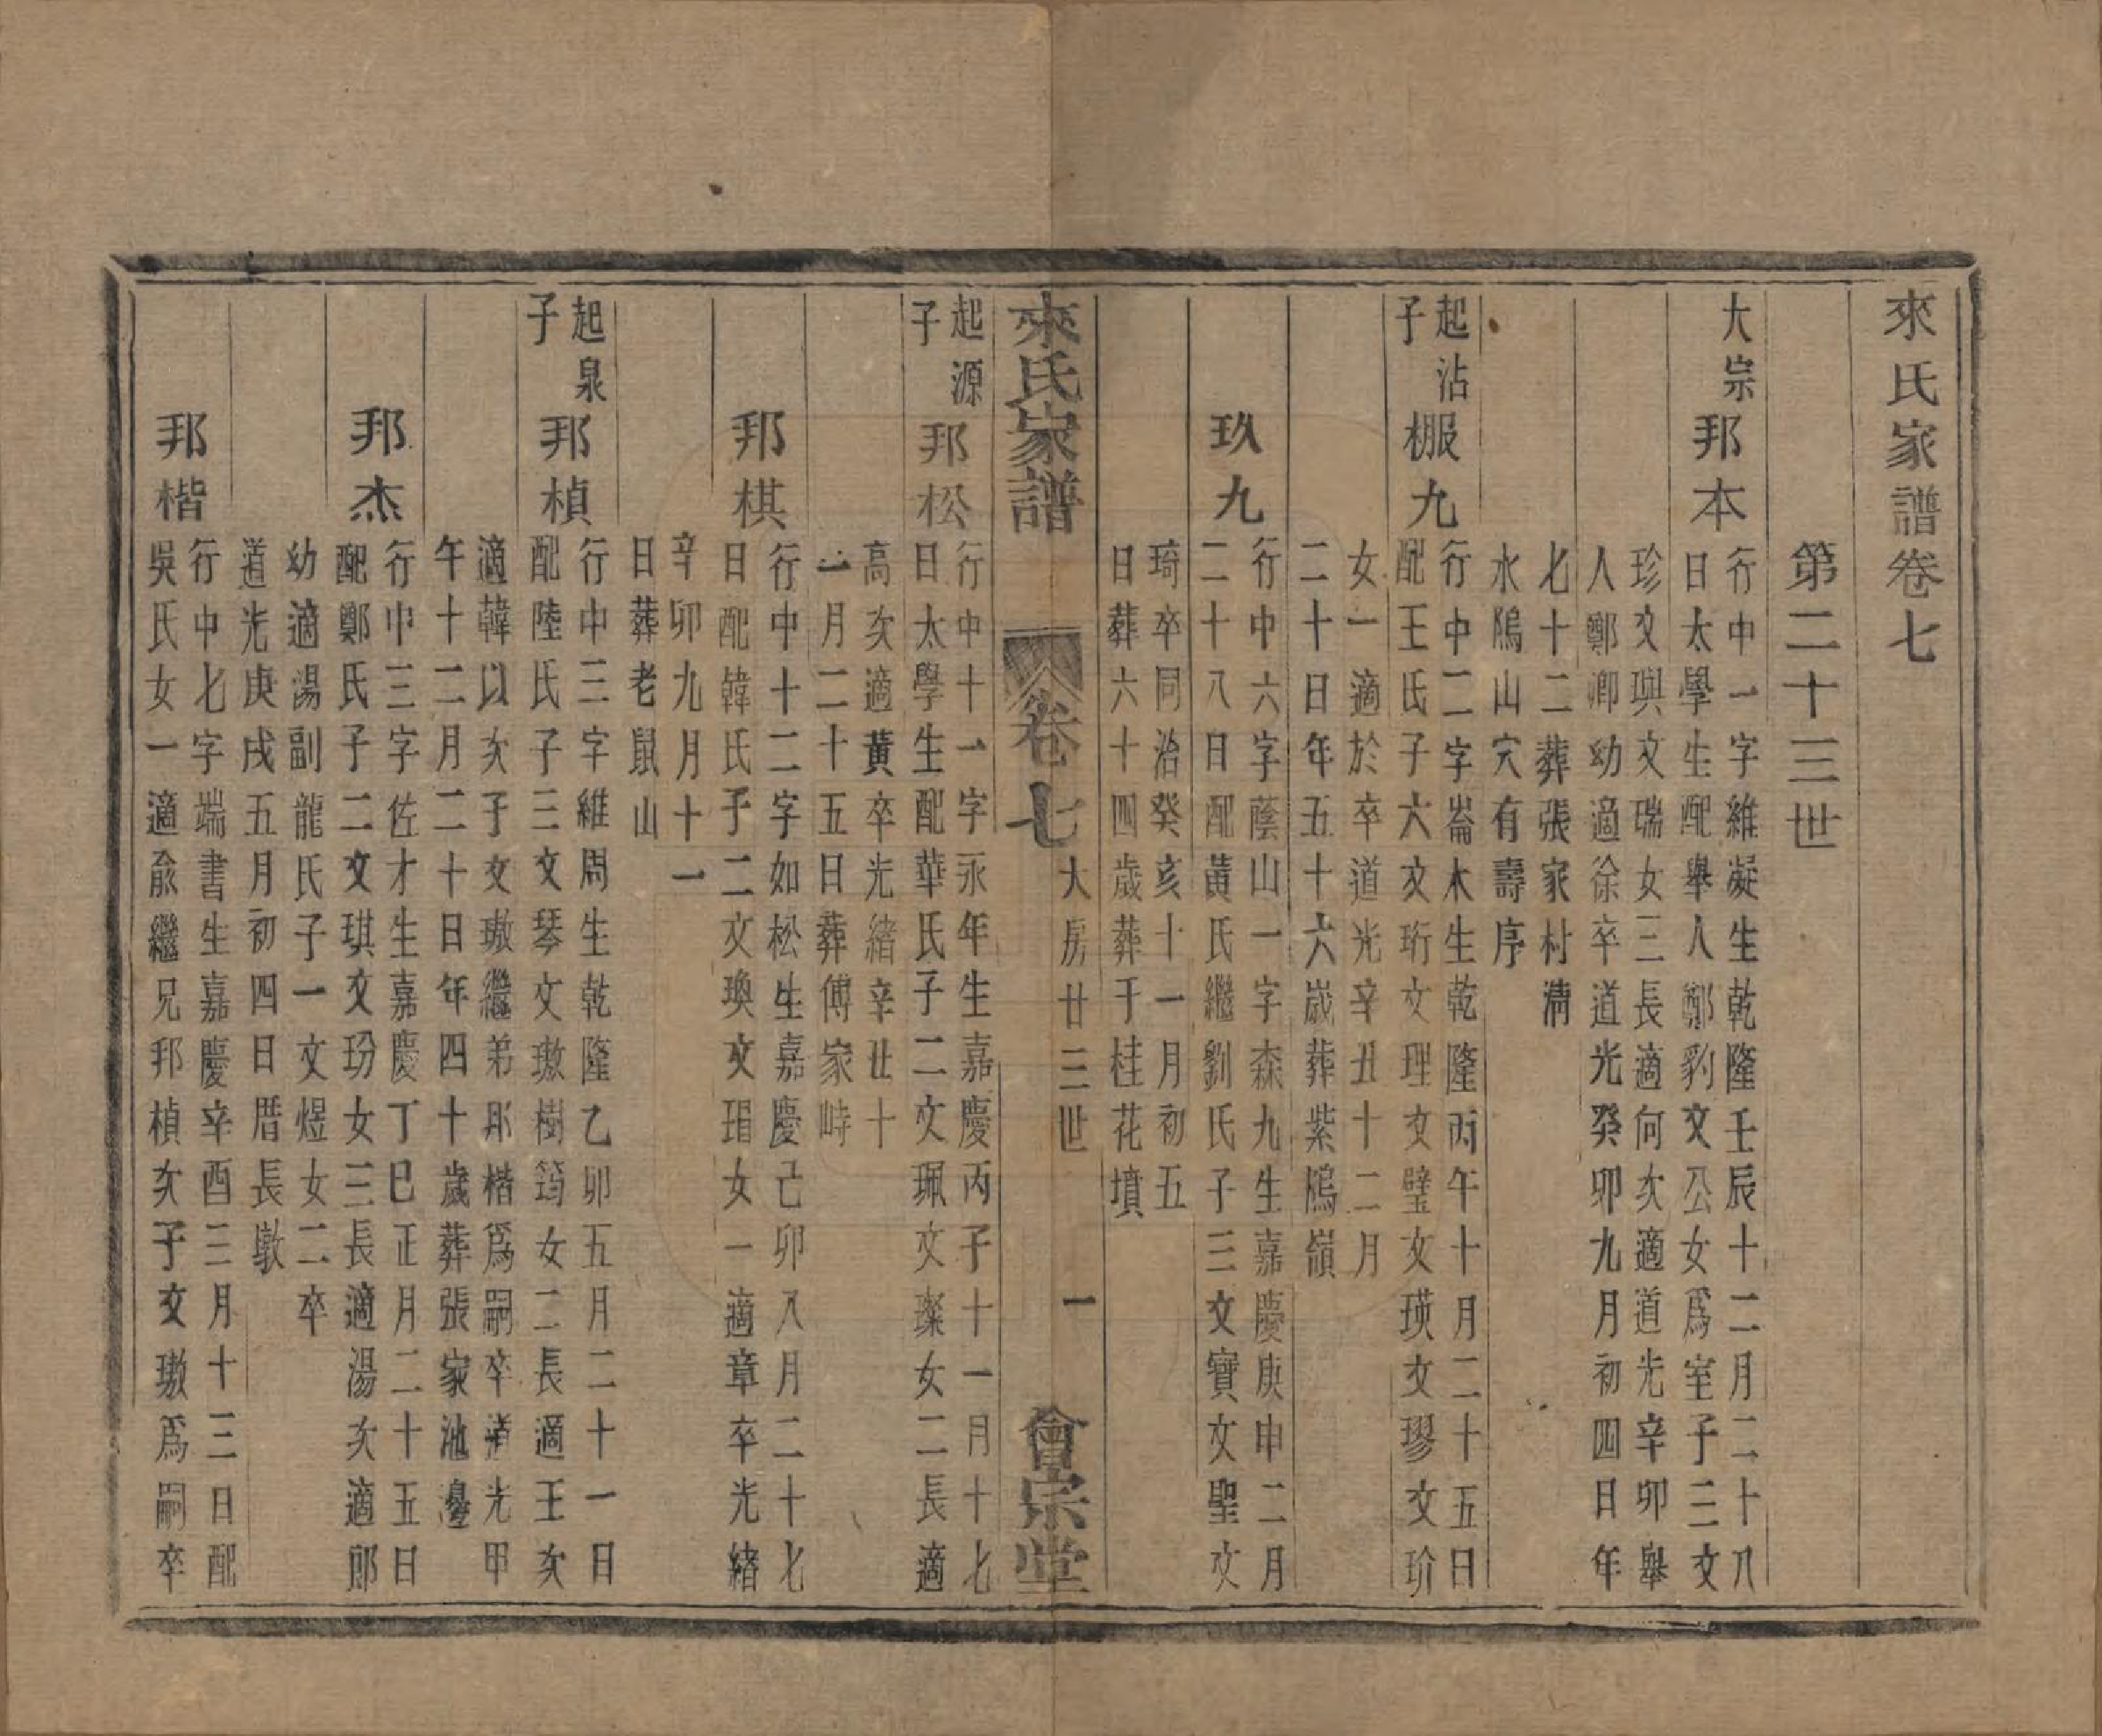 來氏家譜卷七
第二十三世
大宗
邦本
行中一字維凝生乾隆壬辰十二月二十八
日太學生配舉人鄭豹文公女爲室子三文
珍文璵文瑞女三長適何次適道光辛卯舉
人鄭卿幼適徐卒道光癸卯九月初四日年
七十二葬張家村灣
水隖山穴有壽序
起沾
子
棚九
行中二字崙木生乾隆丙午十月二十五日
配王氏子六文珩文理文璧文瑛文璆文玠
女一適於卒道光辛丑十二月
二十日年五十六歲葬紫隖嶺
玖九
行中六字蔭山一字森九生嘉慶庚申二月
二十八日配黃氏繼劉氏子三文寶文聖文
琦卒同治癸亥十一月初五
日葬六十四歲葬于桂花墳
來氏家譜
卷七
大房廿三世
一
會宗堂
起源
子
邦松
行中十一字永年生嘉慶丙子十一月十七
日太學生配華氏子二文珮文璨女二長適
高次適黃卒光緒辛丑十
一月二十五日葬傅家峙
邦棋
行中十二字如松生嘉慶己卯八月二十七
日配韓氏子二文瑍文琄女一適章卒光緒
辛卯九月十一
日葬老鼠山
起泉
子
邦楨
行中三字維周生乾隆乙卯五月二十一日
配陸氏子三文琴文璈樹筠女二長適王次
適韓以次子文璈繼弟邦楷爲嗣卒道光甲
午十二月二十日年四十歲葬張家池邊
邦杰
行中三字佐才生嘉慶丁巳正月二十五日
配鄭氏子二文琪文玢女三長適湯次適郎
幼適湯副龍氏子一文煜女二卒
道光庚戌五月初四日厝長墩
邦楷
行中七字端書生嘉慶辛酉三月十三日配
吳氏女一適俞繼兄邦楨次子文璈爲嗣卒